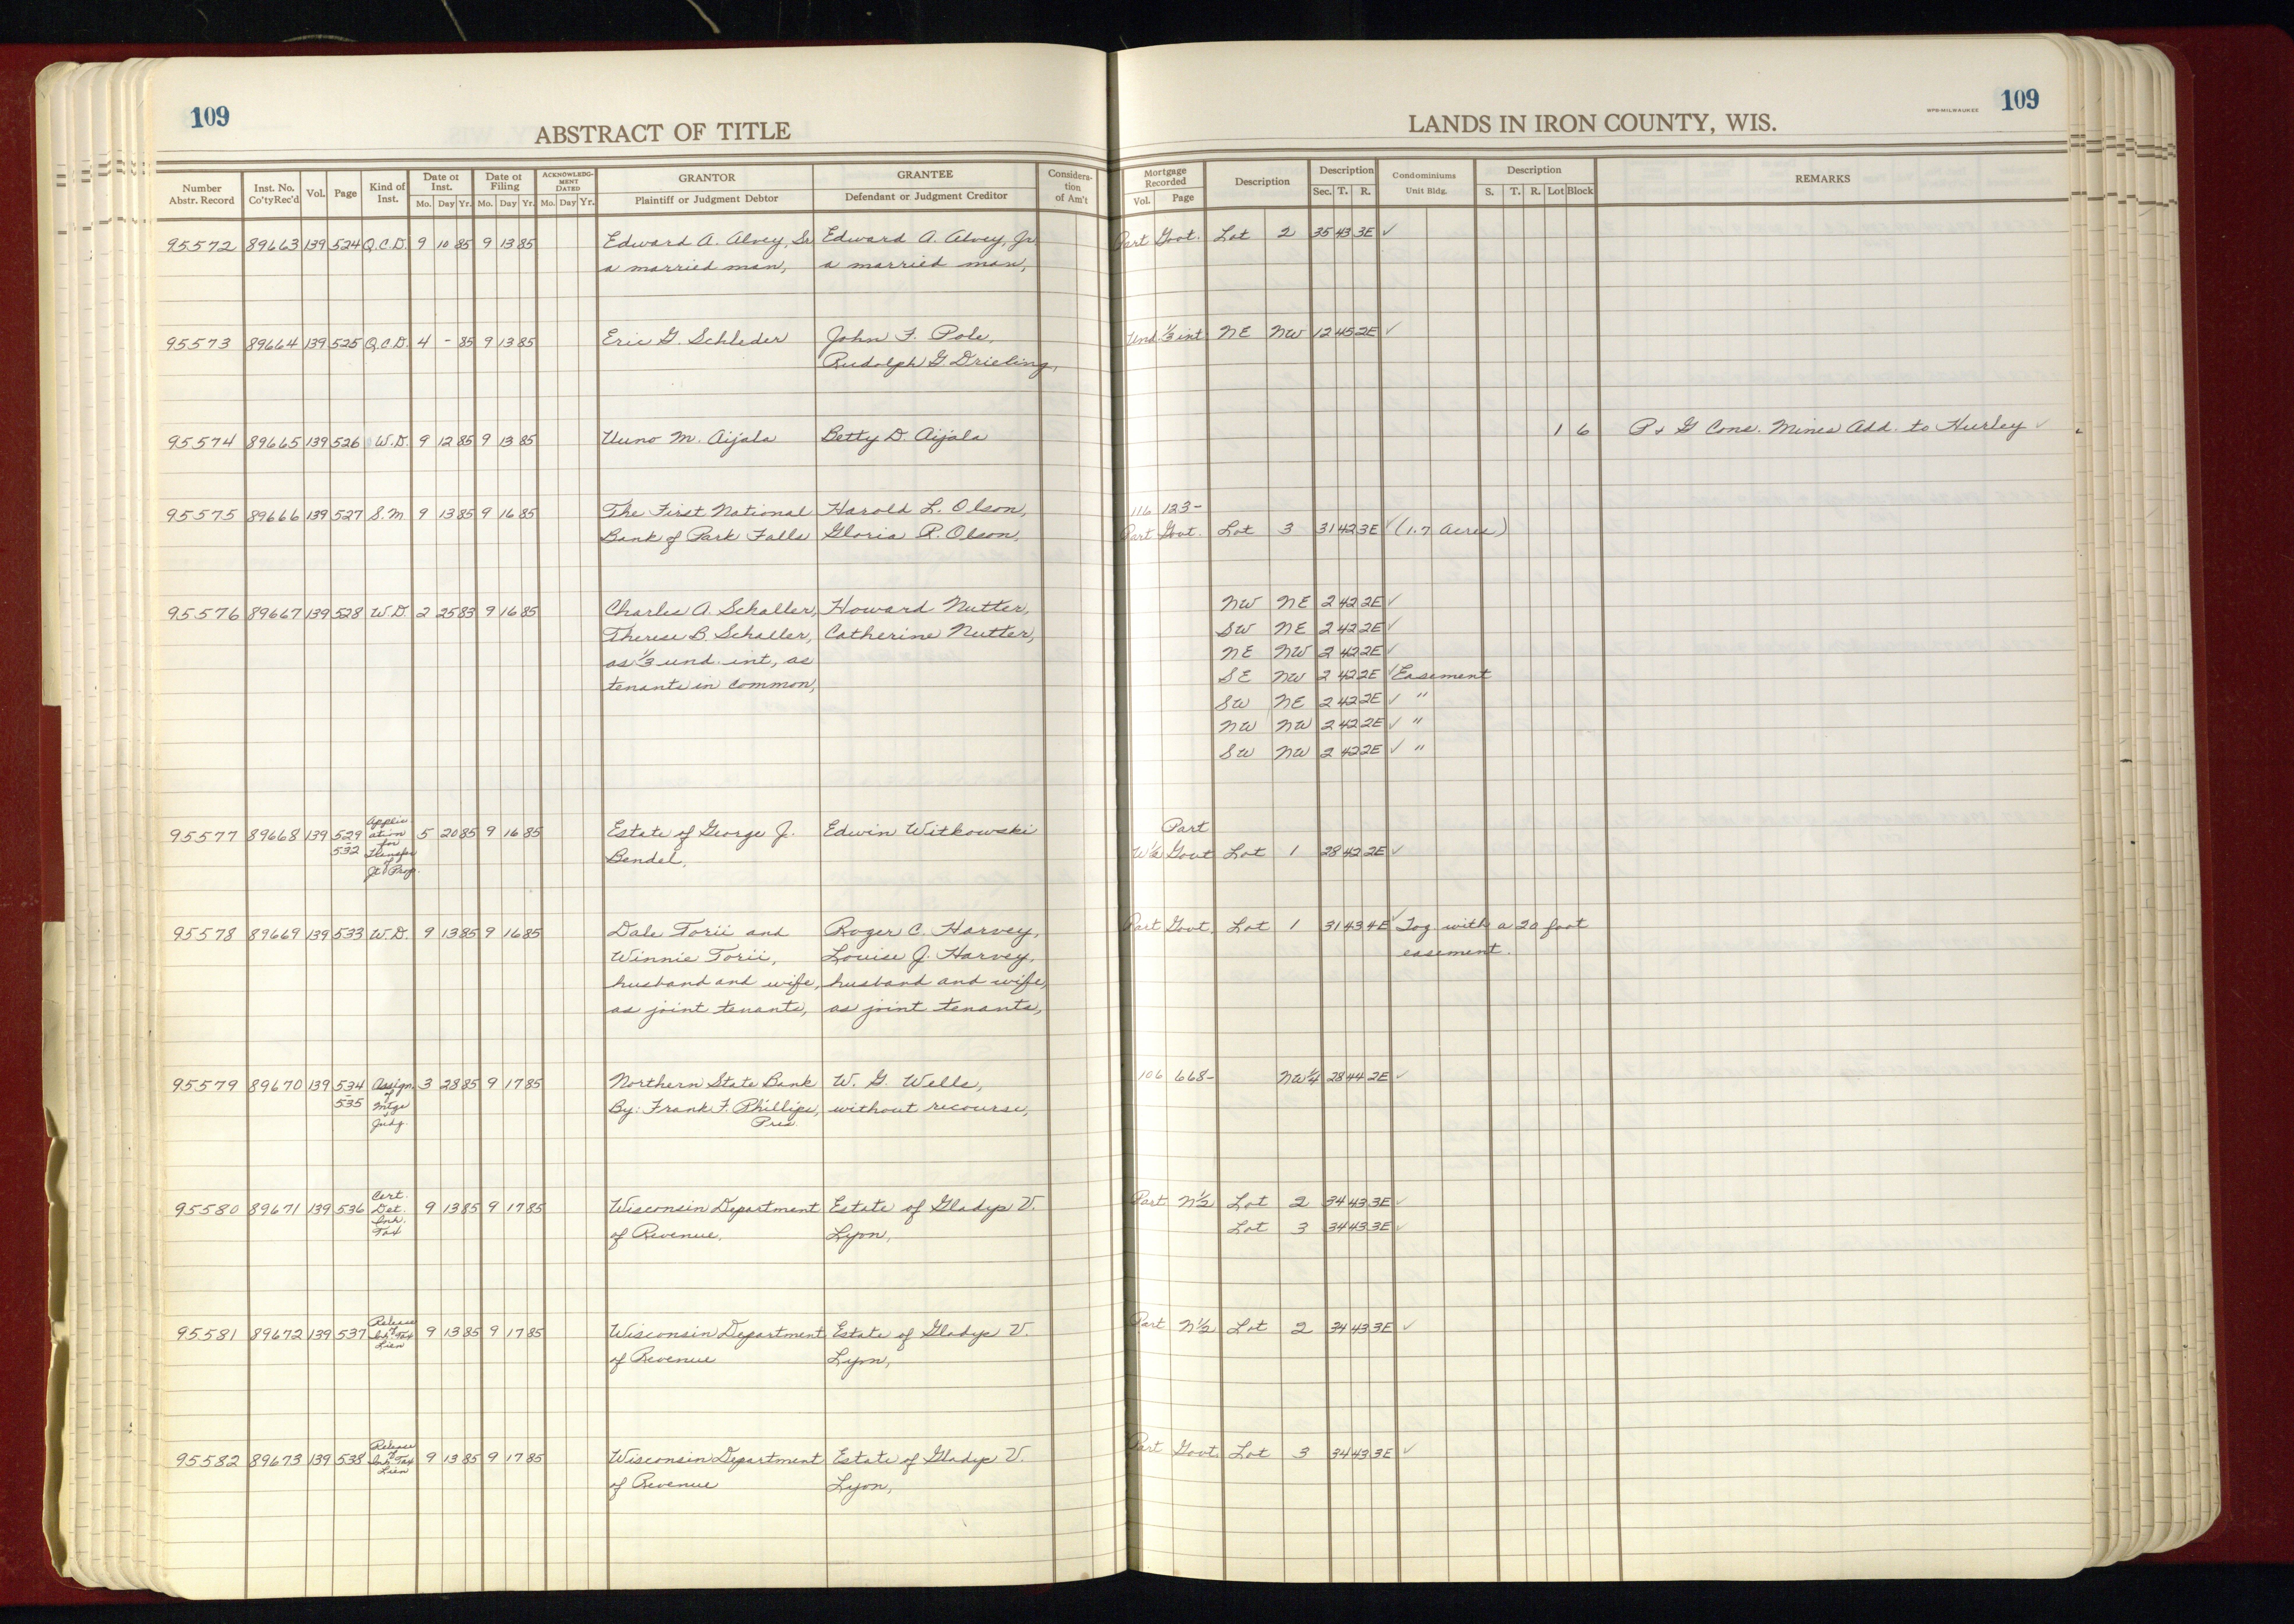 109
ABSTRACT OF TITLE
LANDS IN IRON COUNTY, WIS.
WPB-MILWAUKEE
109
Number Abstr. Record Inst. No. Co'ty Rec'd Vol. Page Kind of Inst. Date of Inst. Mo. Day Yr. Date of Filing Mo. Day Yr. ACKNOWLEDGMENT DATED Mo. Day Yr. GRANTOR Plaintiff or Judgment Debtor GRANTEE Defendant or Judgment Creditor Consideration of Am't Mortgage Recorded Vol. Page Description Description Sec. T. R. Condominiums Unit Bldg. Description S. T. R. Lot Block REMARKS
95572 89663 139 524 Q.C.D. 9 10 85 9 13 85 Edward A. Alvey, Sr Edward A. Alvey, Jr Part Govt. Lot 2 35 43 3E ✓
a married man, a married man,
95573 89664 139 525 Q.C.D. 4 - 85 9 13 85 Eric G. Schleder John F. Pole, Und. 1/3 int NE NW 12 45 2E ✓
Rudolph G. Drieling,
95574 89665 139 526 W.D. 9 12 85 9 13 85 Uuno M. Aijala Betty D. Aijala 1 6 P & G Cons. Mines Add. to Hurley ✓
95575 89666 139 527 S.M 9 13 85 9 16 85 The First National Harold L. Olson, 116 123-
Bank of Park Falls Gloria P. Olson, Part Govt. Lot 3 31 42 3E ✓ (1.7 acres)
95576 89667 139 528 W.D. 2 25 83 9 16 85 Charles A. Schaller, Howard Nutter, NW NE 2 42 2E ✓
Therese B. Schaller, Catherine Nutter, SW NE 2 42 2E ✓
as 1/3 und. int, as NE NW 2 42 2E ✓
tenants in common, SE NW 2 42 2E ✓ Easement
SW NE 2 42 2E ✓ "
NW NW 2 42 2E ✓ "
SW NW 2 42 2E ✓ "
95577 89668 139 529 - 532 Application for Transfer of Jt Prop. 5 20 85 9 16 85 Estate of George J. Edwin Witkowski Part
Bendel, W½ Govt Lot 1 28 42 2E ✓
95578 89669 139 533 W.D. 9 13 85 9 16 85 Dale Torii and Roger C. Harvey, Part Govt. Lot 1 31 43 4E ✓ Tog with a 20 foot
Winnie Torii, Louise J. Harvey, easement.
husband and wife, husband and wife,
as joint tenants, as joint tenants,
95579 89670 139 534 - 535 Assign. of Mtge & Judg. 3 28 85 9 17 85 Northern State Bank W. G. Wells, 106 668- NW¼ 28 44 2E ✓
By: Frank F. Phillips, without recourse,
Pres.
95580 89671 139 536 Cert. Det. Inh. Tax 9 13 85 9 17 85 Wisconsin Department Estate of Gladys V. Part N½ Lot 2 34 43 3E ✓
of Revenue, Lyon, Lot 3 34 43 3E ✓
95581 89672 139 537 Release of Inh. Tax Lien 9 13 85 9 17 85 Wisconsin Department Estate of Gladys V. Part N½ Lot 2 34 43 3E ✓
of Revenue Lyon,
95582 89673 139 538 Release of Inh. Tax Lien 9 13 85 9 17 85 Wisconsin Department Estate of Gladys V. Part Govt. Lot 3 34 43 3E ✓
of Revenue Lyon,